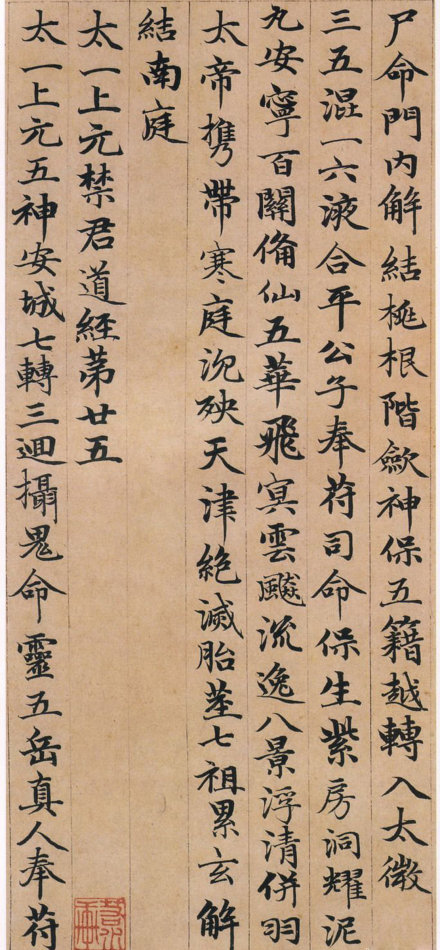 尸命門内解結桃根階歘神保五籍越轉入太微
三五混一六液合平公子奉苻司命保生紫房洞耀泥
丸安寧百關俻仙五華飛冥雲飈流逸八景浮清併羽
太帝携帶寒庭沉殃天津絕滅胎莖七祖累玄解
結南庭
太一上元禁君道經苐廿五
太一上元五神安城七轉三迴攝鬼命靈五岳真人奉苻